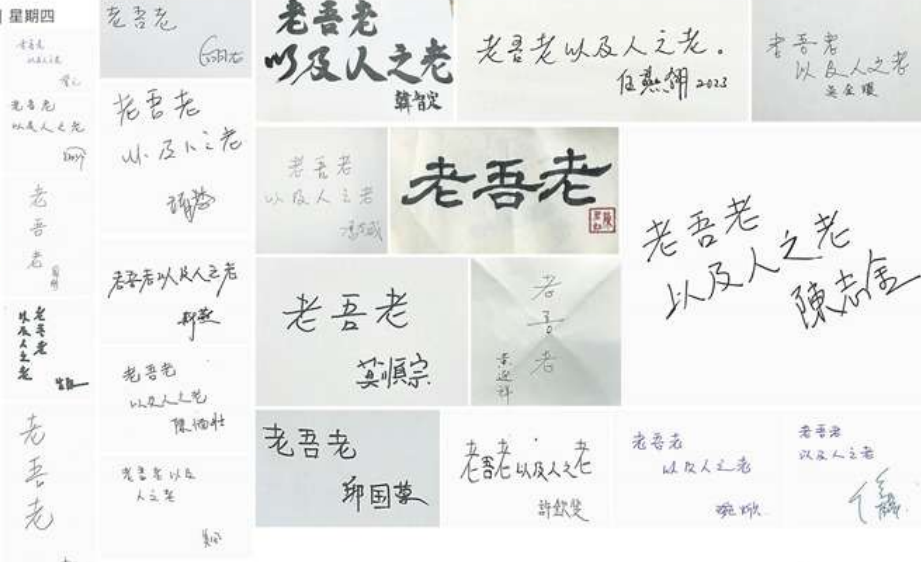 星期四
老吾老
以及人之老
老吾老
以及人之老
老吾老
老吾老
以及人之老
老吾老
老吾老
老吾老
以及人之老
老吾老以及人之老
老吾老
以及人之老
老吾老以及
人之老
老吾老
以及人之老
韓智定
老吾老以及人之老.
任燕翎 2023
老吾老
以及人之老
老吾老
以及人之老
老吾老
老吾老
以及人之老
陳志金
老吾老
莫順宗
老吾老
老吾老
邱国荣
老吾老以及人之老
許欽斐
老吾老
以及人之老
老吾老
以及人之老